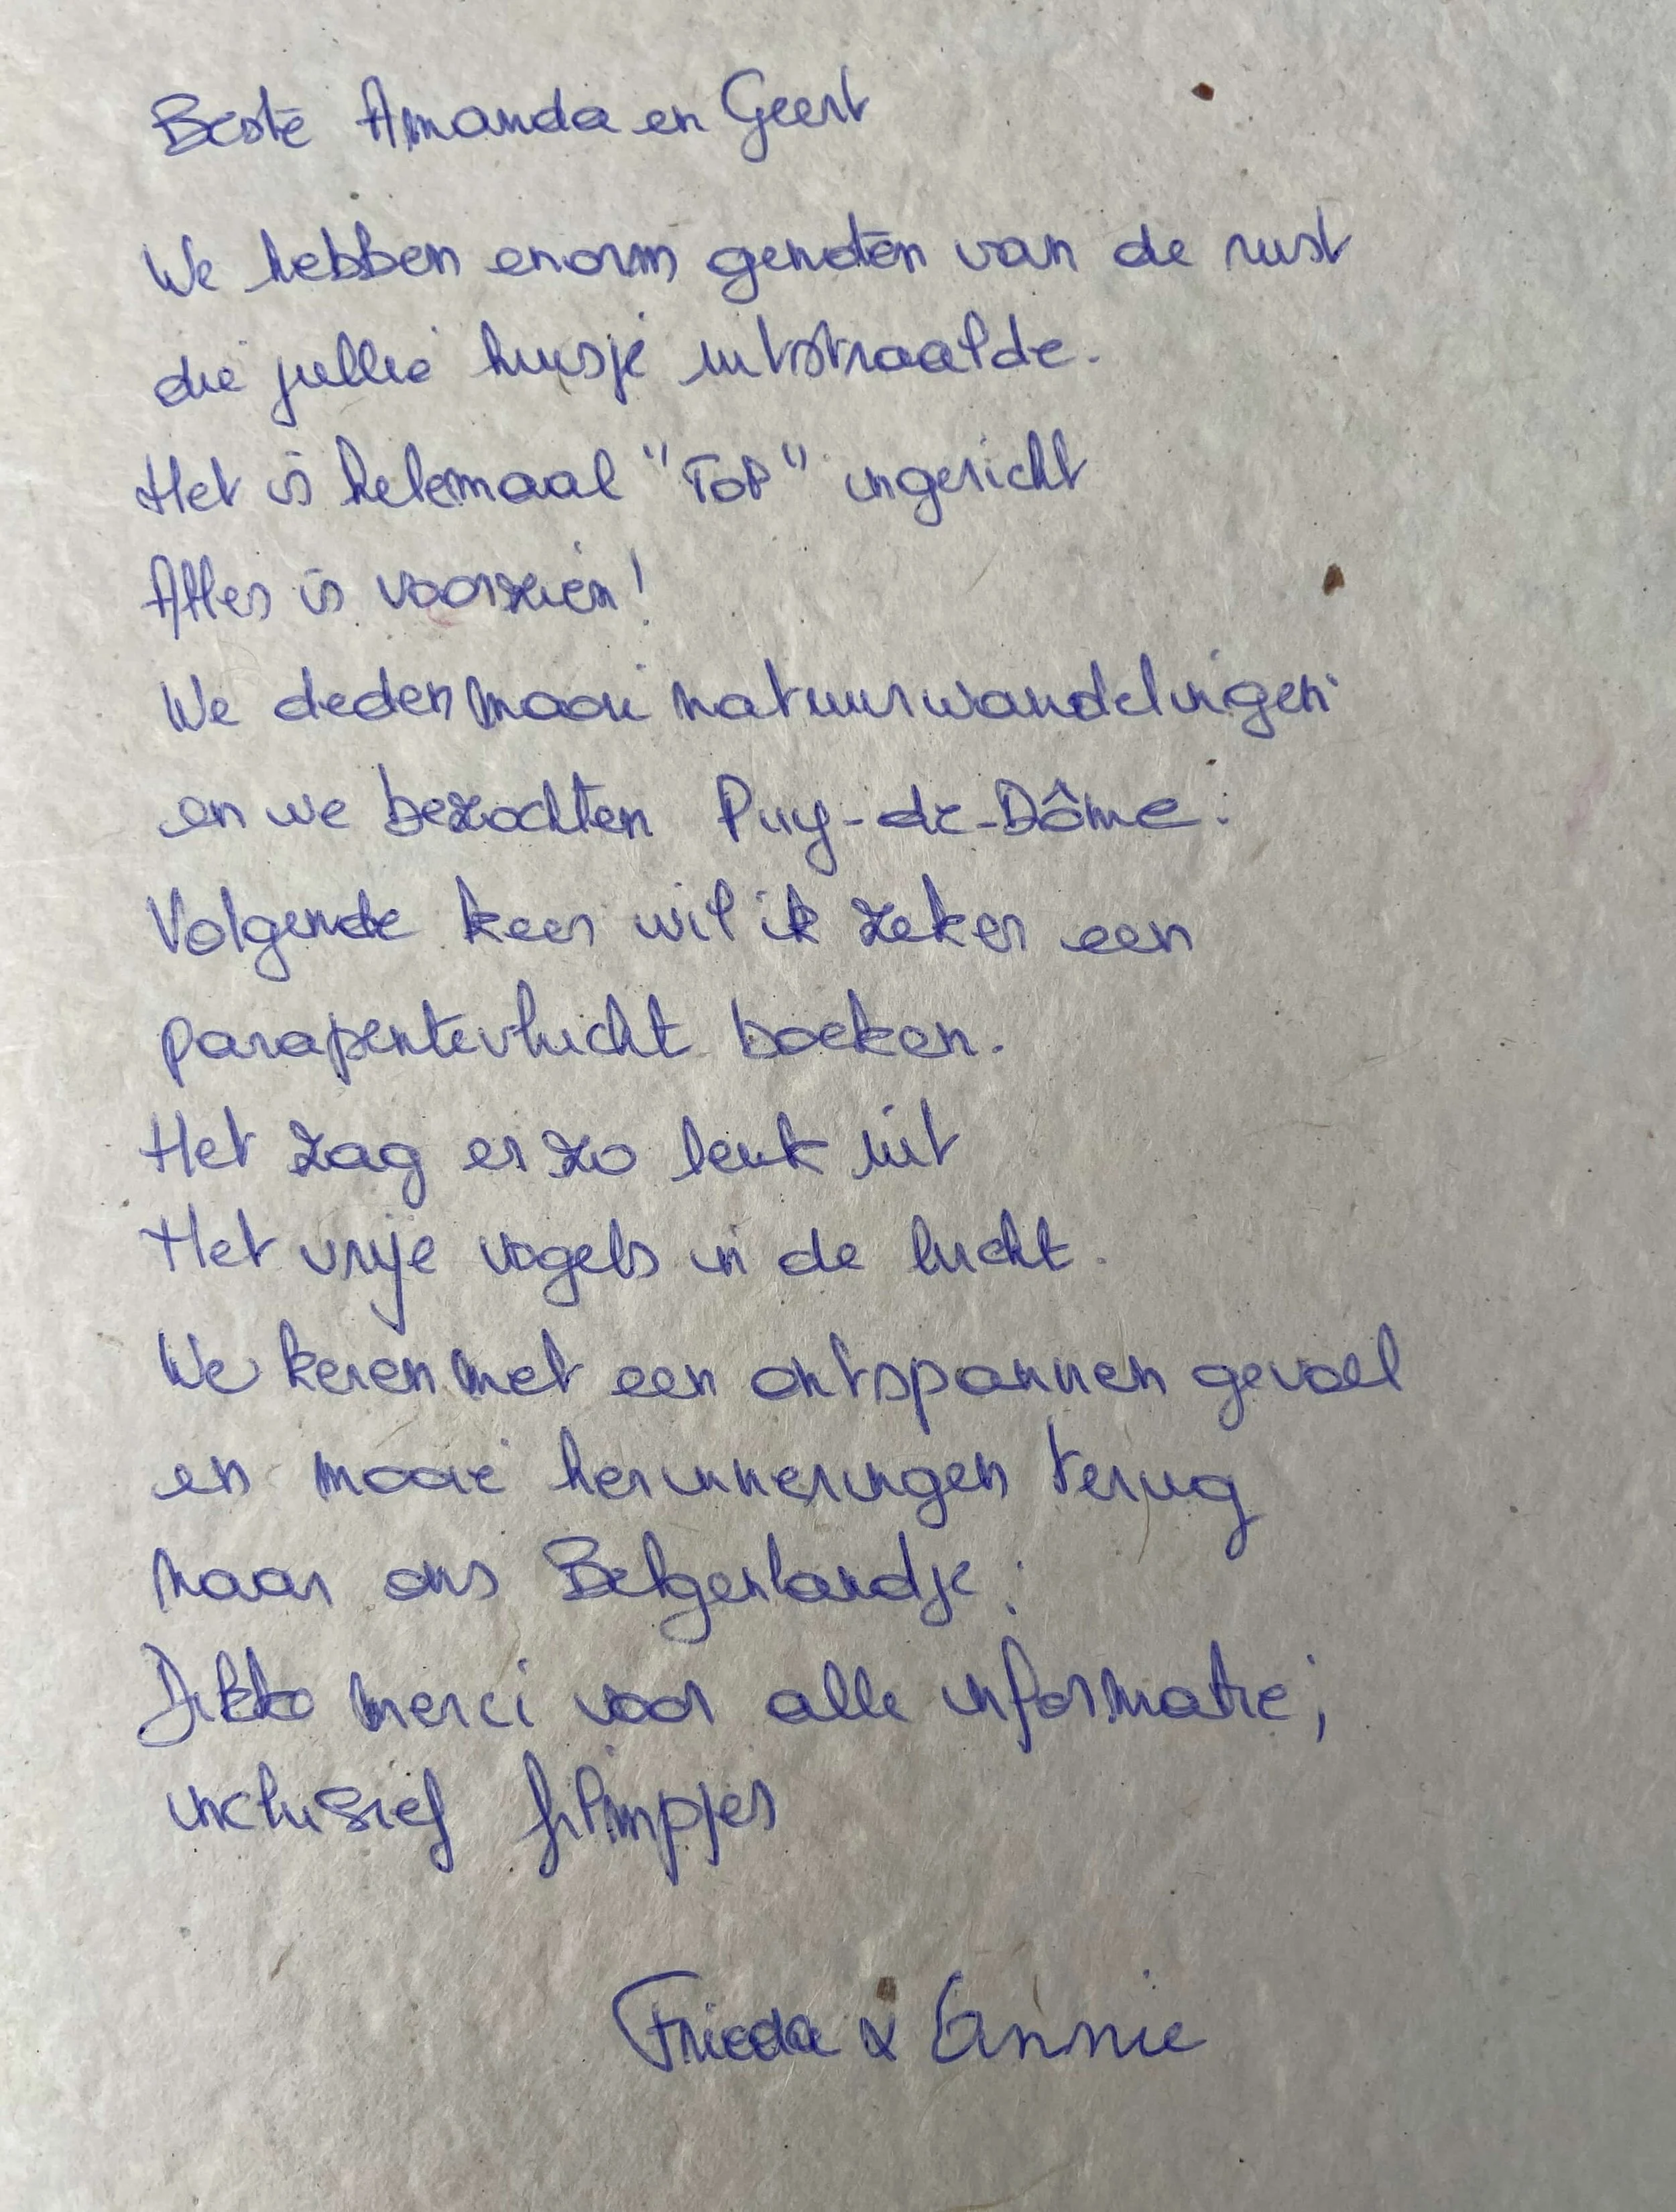 Beste Amanda en Geert
We hebben enorm genoten van de rust
die jullie huisje uitstraalde.
Het is helemaal "TOP" ingericht
Alles is voorzien!
We deden mooie natuurwandelingen
en we bezochten Puy-de-Dôme.
Volgende keer wil ik zeker een
parapentevlucht boeken.
Het zag er zo leuk uit
Het vrije vogels in de lucht.
We keren met een ontspannen gevoel
en mooie herinneringen terug
naar ons Belgenlandje.
Dikke merci voor alle informatie,
inclusief filmpjes
Frieda & Annie